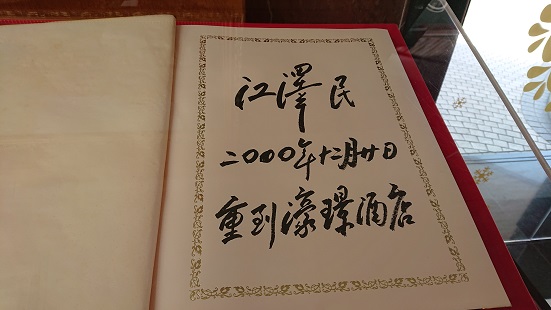 江澤民
二000年十二月廿日
重到濠璟酒店